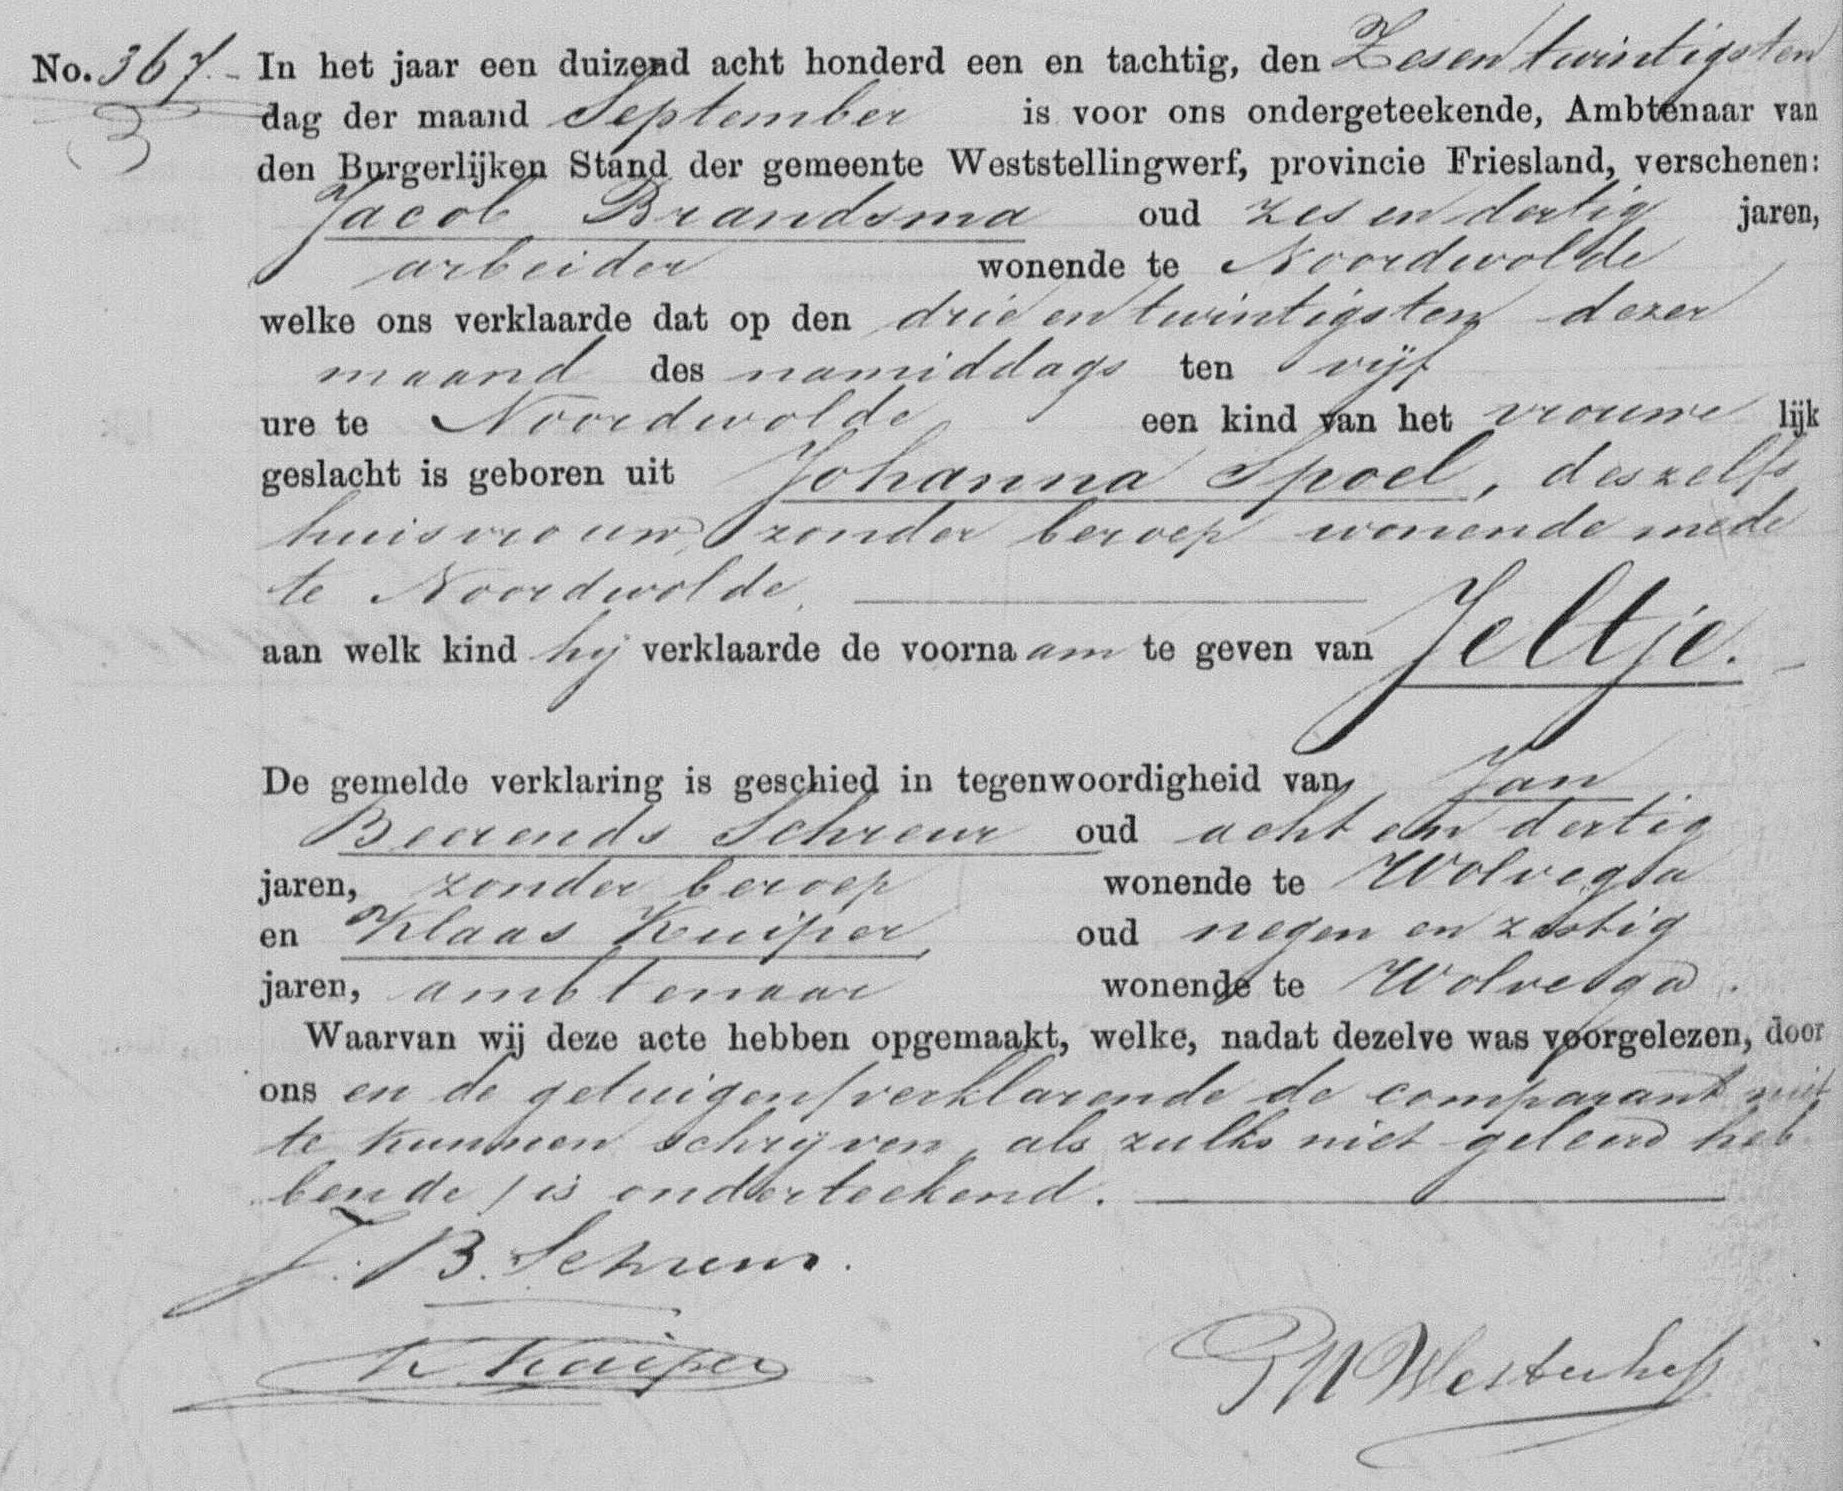 No. 367. In het jaar een duizend acht honderd een en tachtig, den Zesentwintigsten
3 dag der maand September is voor ons ondergeteekende, Ambtenaar van
den Burgerlijken Stand der gemeente Weststellingwerf, provincie Friesland, verschenen:
Jacob Brandsma oud zes en dertig jaren,
arbeider wonende te Noordwolde
welke ons verklaarde dat op den drie en twintigsten dezer
maand des namiddags ten vijf
ure te Noordwolde een kind van het vrouwe lijk
geslacht is geboren uit Johanna Spoel, deszelfs
huisvrouw, zonder beroep wonende mede
te Noordwolde,
aan welk kind hij verklaarde de voornaam te geven van Jeltje.
De gemelde verklaring is geschied in tegenwoordigheid van Jan
Beerends Schreur oud acht en dertig
jaren, zonder beroep wonende te Wolvega
en Klaas Kuiper, oud negen en zestig
jaren, ambtenaar wonende te Wolvega.
Waarvan wij deze acte hebben opgemaakt, welke, nadat dezelve was voorgelezen, door
ons en de getuigen /verklarende de comparant niet
te kunnen schrijven, als zulks niet geleerd heb
bende / is onderteekend.
J. B. Schreur.
K Kuiper
Westerhoff